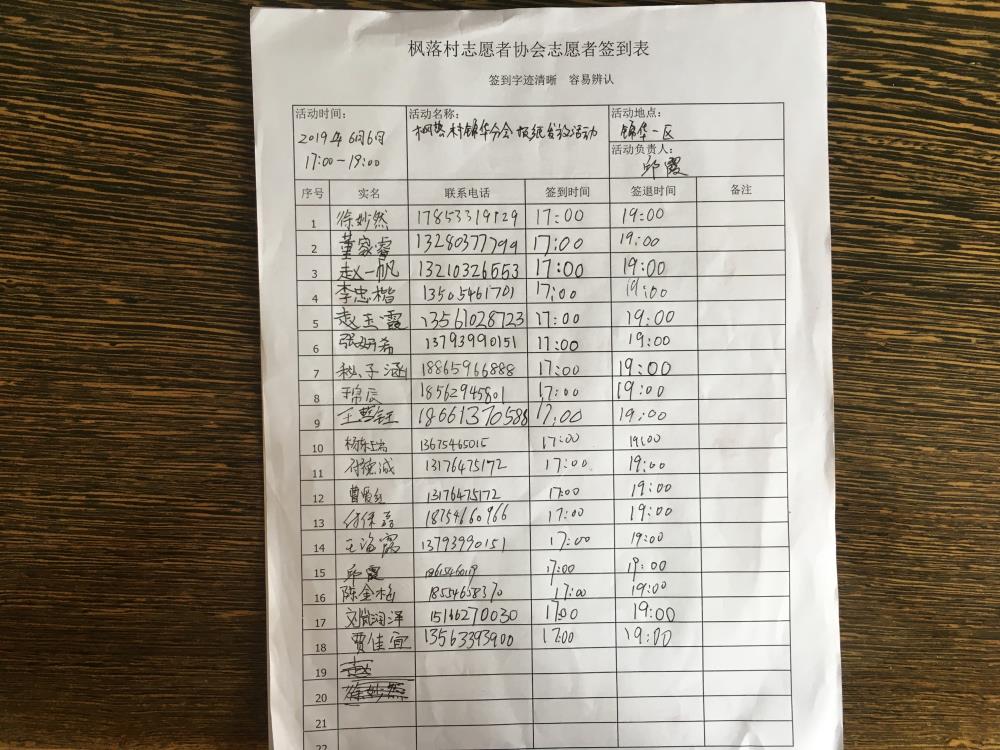 枫落村志愿者协会志愿者签到表
签到字迹清晰 容易辨认
活动时间： 活动名称： 活动地点：
2019年6月6日 锦华分会报纸发放活动 锦华一区
17:00-19:00 活动负责人：
邱霞
序号 实名 联系电话 签到时间 签退时间 备注
1 徐妙然 17:00 19:00
2 董家睿 13280377799 17:00 19:00
3 赵一帆 13210326553 17:00 19:00
4 李忠楷 13505461701 17:00 19:00
5 赵玉霞 13561028723 17:00 19:00
6 张妍希 13793990151 17:00 19:00
7 子涵 18865966888 17:00 19:00
8 18562945801 17:00 19:00
9 18661370588 17:00 19:00
10 13675465015 17:00 19:00
11 付德诚 13176475172 17:00 19:00
12 13176475172 17:00 19:00
13 18754660966 17:00 19:00
14 王海霞 13793990151 17:00 19:00
15 邱霞 17:00 19:00
16 17:00 19:00
17 刘润泽 15166270030 17:00 19:00
18 贾佳宜 13563393900 17:00 19:00
19
20 徐妙然
21
22